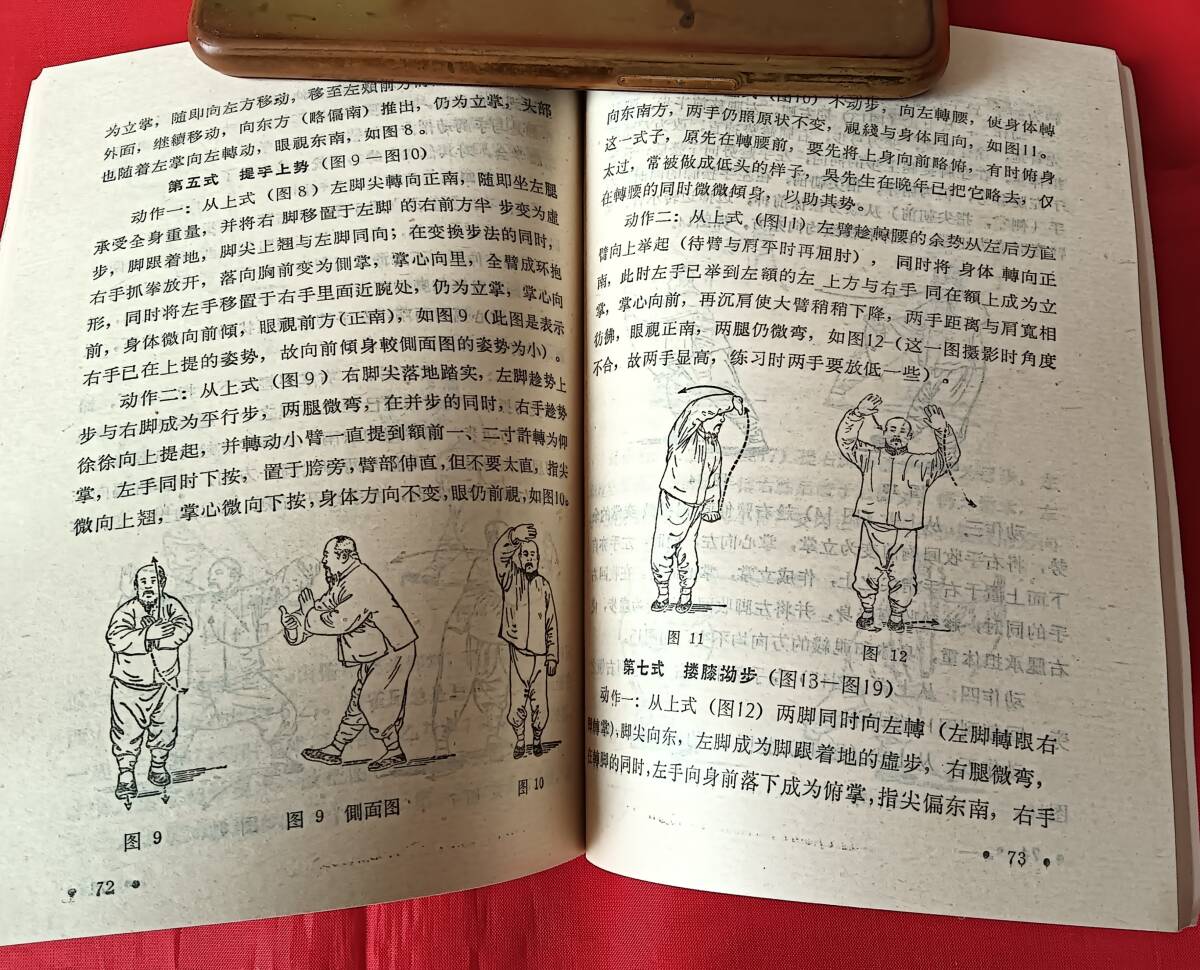 为立掌，随即向左方移动，移至左頰前方
外面，继續移动，向东方（略偏南）推出，仍为立掌，头部
也随着左掌向左轉动，眼視东南，如图８。
第五式　提手上势（图９—图10）
动作一：从上式（图８）左脚尖轉向正南，随即坐左腿
承受全身重量，并将右脚移置于左脚的右前方半步变为虛
步，脚跟着地，脚尖上翘与左脚同向；在变换步法的同时，
右手抓拳放开，落向胸前变为側掌，掌心向里，全臂成环抱
形，同时将左手移置于右手里面近腕处，仍为立掌，掌心向
前，身体微向前傾，眼視前方(正南)，如图９（此图是表示
右手已在上提的姿势，故向前傾身較側面图的姿势为小）。
动作二：从上式（图９）右脚尖落地踏实，左脚趁势上
步与右脚成为平行步，两腿微弯，在并步的同时，右手趁势
徐徐向上提起，并轉动小臂一直提到額前一、二寸許轉为仰
掌，左手同时下按，置于胯旁，臂部伸直，但不要太直，指尖
微向上翘，掌心微向下按，身体方向不变，眼仍前視，如图10。
图９
图９ 側面图
图10
· 72 ·
（图10）不动步，向左轉腰，使身体轉
向东南方，两手仍照原状不变，視綫与身体同向，如图11。
这一式子，原先在轉腰前，要先将上身向前略俯，有时俯身
太过，常被做成低头的样子，吳先生在晚年已把它略去，仅
在轉腰的同时微微傾身，以助其势。
动作二：从上式（图11）左臂趁轉腰的余势从左后方直
臂向上举起（待臂与肩平时再屈肘），同时将身体轉向正
南，此时左手已举到左額的左上方与右手同在額上成为立
掌，掌心向前，再沉肩使大臂稍稍下降，两手距离与肩寬相
彷彿，眼視正南，两腿仍微弯，如图12（这一图摄影时角度
不合，故两手显高，练习时两手要放低一些）。
图11
图12
第七式　搂膝拗步（图13—图19）
动作一：从上式（图12）两脚同时向左轉（左脚轉跟右
脚轉掌），脚尖向东，左脚成为脚跟着地的虛步，右腿微弯，
在轉脚的同时，左手向身前落下成为俯掌，指尖偏东南，右手
· 73 ·